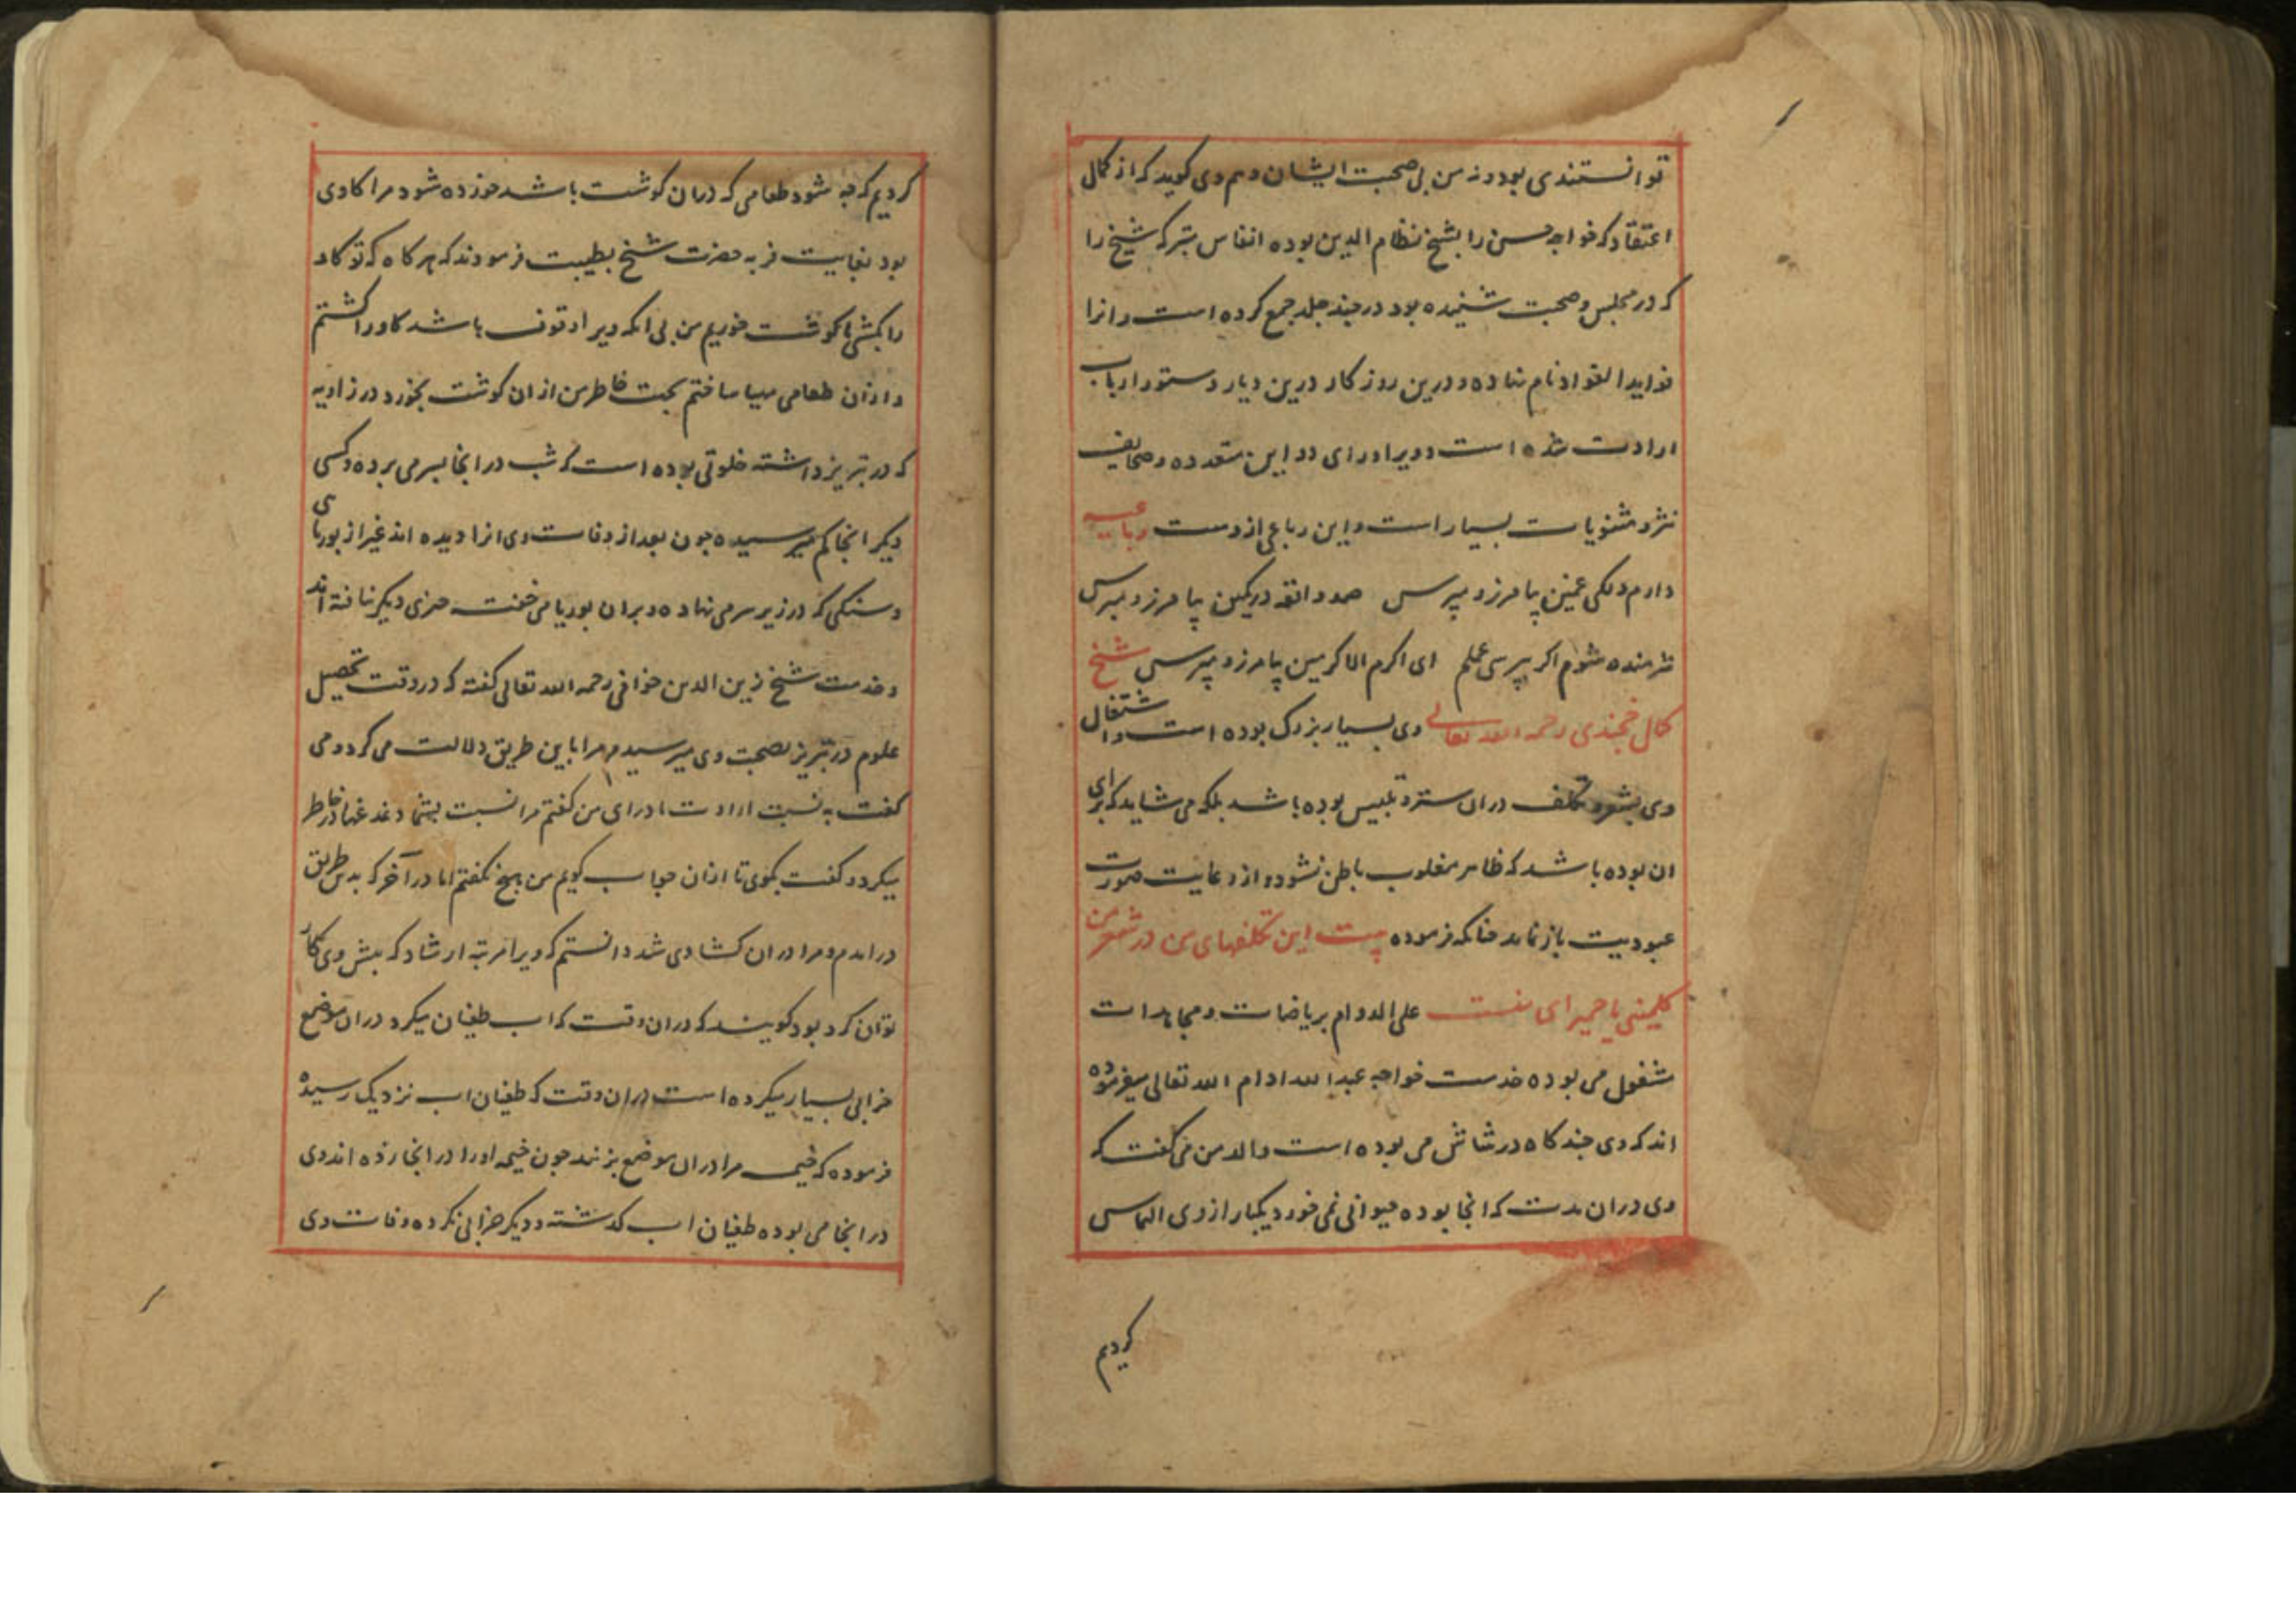 توانستندی بود و نه من بی صحبت ایشان و هم وی کوید که از کمال
اعتقاد که خواجه حسن را بشیخ نظام الدین بوده انفاس متبرکه شیخ را
که در مجلس و صحبت شنیده بود در چند جلد جمع کرده است و انرا
فواید الفواد نام نهاده و درین روزکار درین دیار دستور ارباب
ارادت شده است و ویرا ورای دواین متعدده و صحایف
نثر و مثنویات بسیار است و این رباعی از وست رباعیه
دارم دلکی غمین بیامرز و مپرس صد واقعه در کمین بیامرز و مپرس
شرمنده شوم اکر بپرسی عملم ای اکرم الاکرمین بیامرز و مپرس شیخ
کمال خجندی رحمه الله تعالی وی بسیار بزرک بوده است و اشتغال
وی بشعر و تکلف دران ستر و تلبیس بوده باشد بلکه می شاید که برای
ان بوده باشد که ظاهر مغلوب باطن نشود و از رعایت صورت
عبودیت باز نماند چنانکه فرموده بیت این تکلفهای من در شعر من
کلمینی یا حمیرای منست علی الدوام بریاضات و مجاهدات
مشغول می بوده خدمت خواجه عبد الله ادام الله تعالی میفرموده
اند که وی چند کاه در شاش می بوده است والد من می کفت که
وی دران مدت که انجا بوده حیوانی نمی خورد یکبار از وی التماس
کردیم
کردیم که چه شود طعامی که دران کوشت باشد خورده شود مرا کاوی
بود بغایت فربه حضرت شیخ بطیبت فرمودند که هرکاه که تو کاو
را بکشی ما کوشت خوریم من بی انکه ویرا وقوف باشد کاو را کشتم
و ازان طعامی مهیا ساختم بجهت خاطر من از ان کوشت بخورد در زاویه
که در تبریز داشته خلوتی بوده است که شب در انجا بسر می برده و کسی
دیکر انجا کم میرسیده چون بعد از وفات وی انرا دیده اند غیر از بوریای
و سنکی که در زیر سر می نهاده و بران بوریا می خفت چیزی دیکر نیافته اند
و خدمت شیخ زین الدین خوافی رحمه الله تعالی کفته که در وقت تحصیل
علوم در تبریز بصحبت وی میرسیدم و مرا باین طریق دلالت می کرد و می
کفت به نسبت ارادت ما درای من کفتم مرا نسبت بشما دغدغها در خاطر
میکردد کفت بکوی تا ازان جواب کویم من هیچ نکفتم اما در آخر که بدین طریق
در امدم و مرا دران کشادی شد دانستم که ویرا مرتبه ارشاد که پیش وی کار
توان کرد بود کویند که دران وقت که اب طغیان میکرد دران موضع
خرابی بسیار میکرده است دران وقت که طغیان اب نزدیک رسیده
فرموده که خیمه مرا دران موضع بزنند چون خیمه او را در انجا زده اند وی
در انجا می بوده طغیان اب کذشته و دیکر خرابی نکرده وفات وی